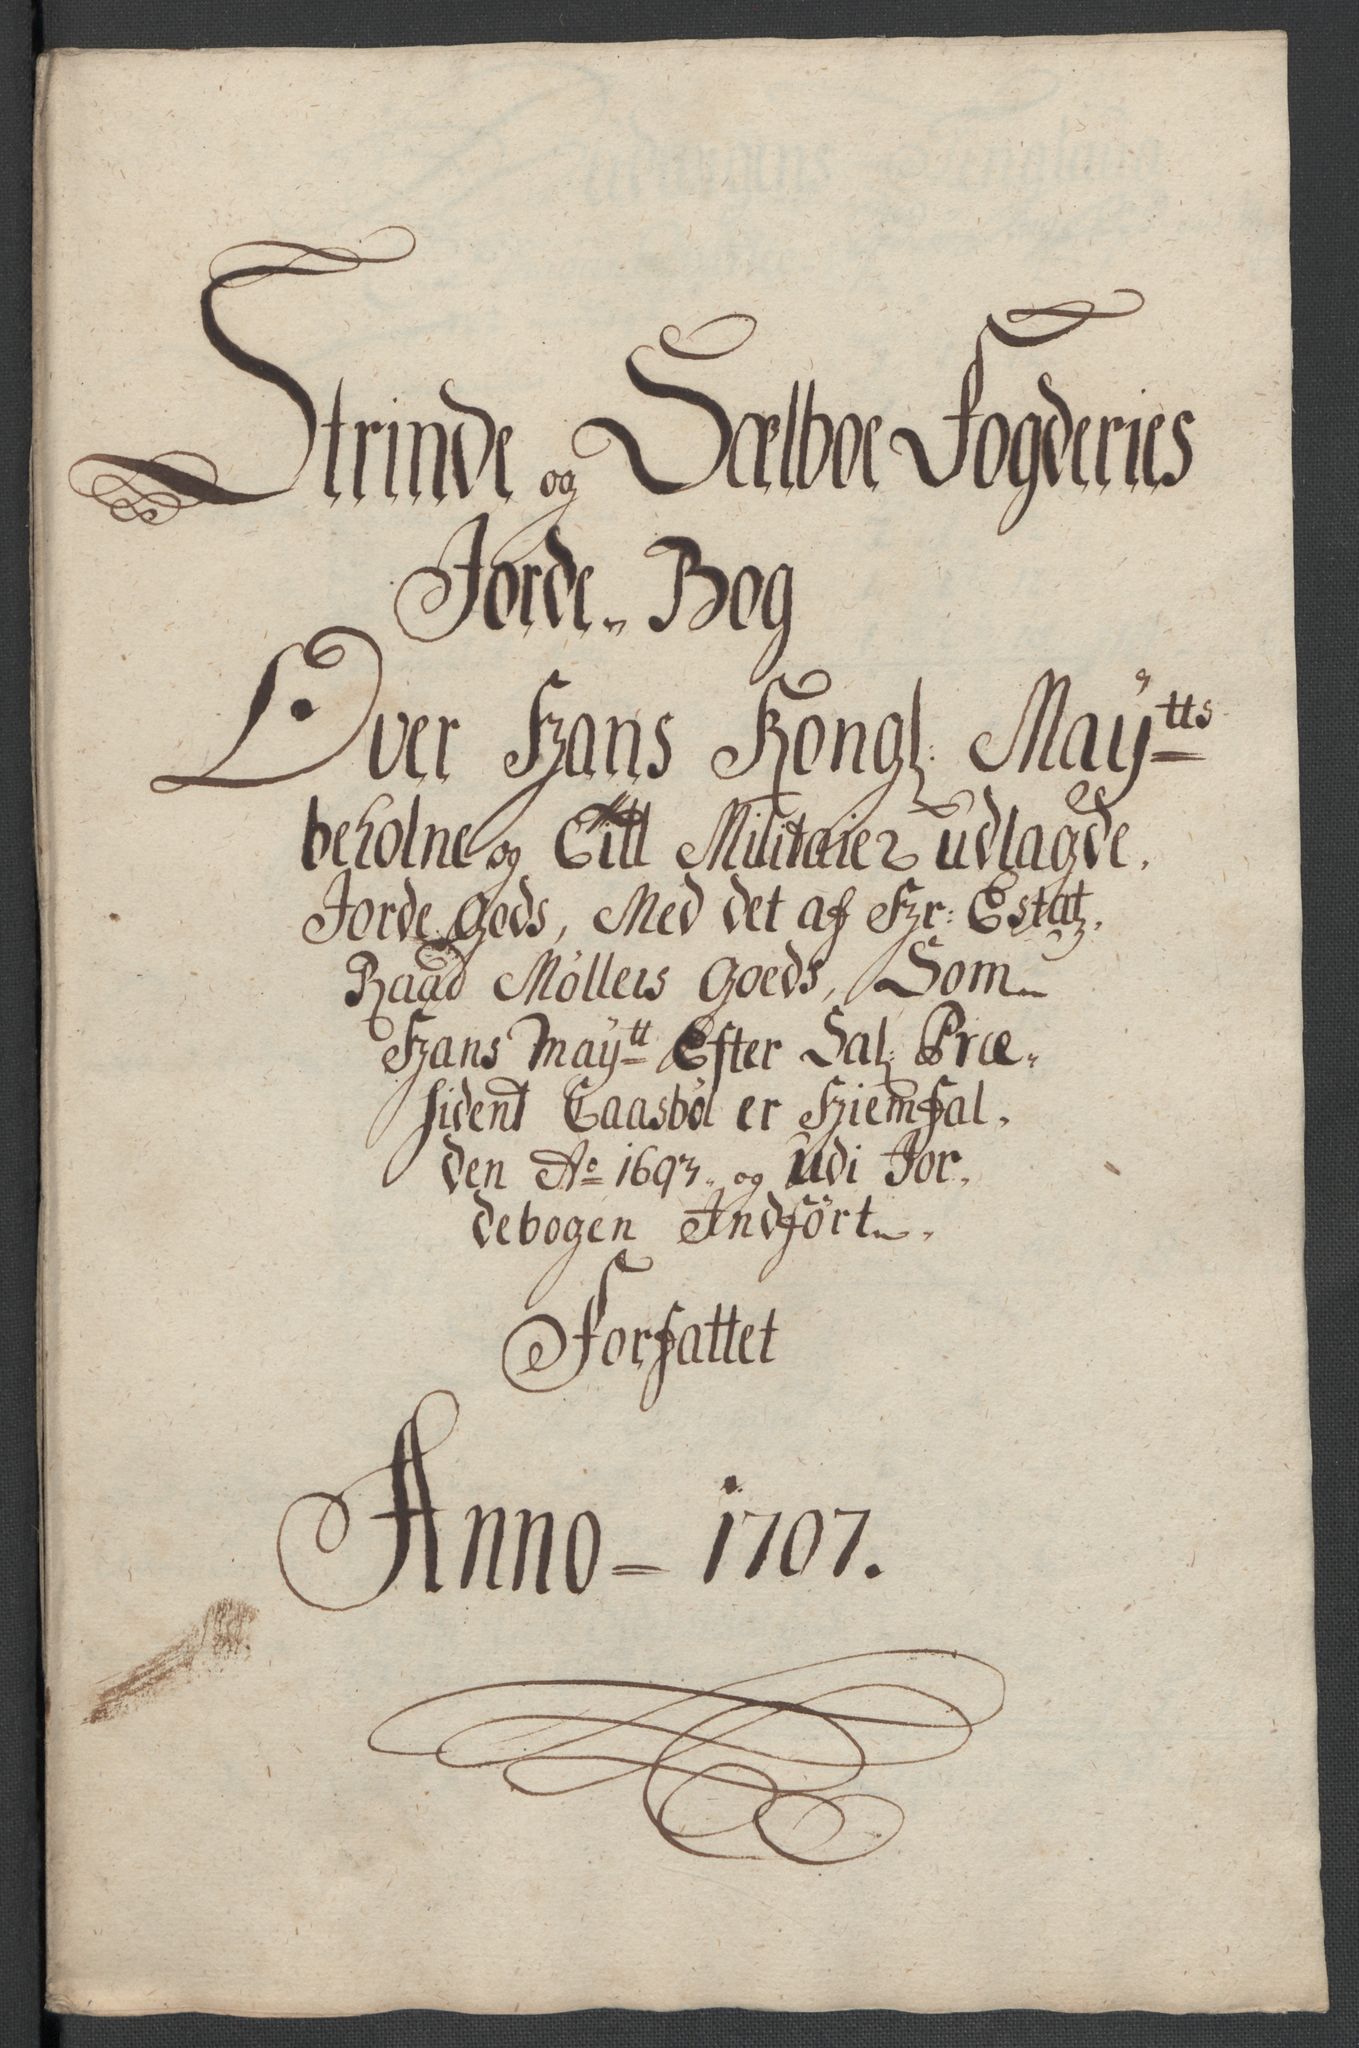 Strinde og Sælboe Fogderies
Jorde„ Bog
Over Hans Kongl: Maÿtts
beholne og Till Militaien udlagde.
Jorde gods, Med det af Hr: Estatz.
Raad Møllers goeds, Som
Hans Maÿtt Efter Sal: Præ„
sident Caasbøl er Hiemfal„
den Ao 1693„ og Udi Jor„
debogen Indført„.
Forfattet
Anno = 1707.